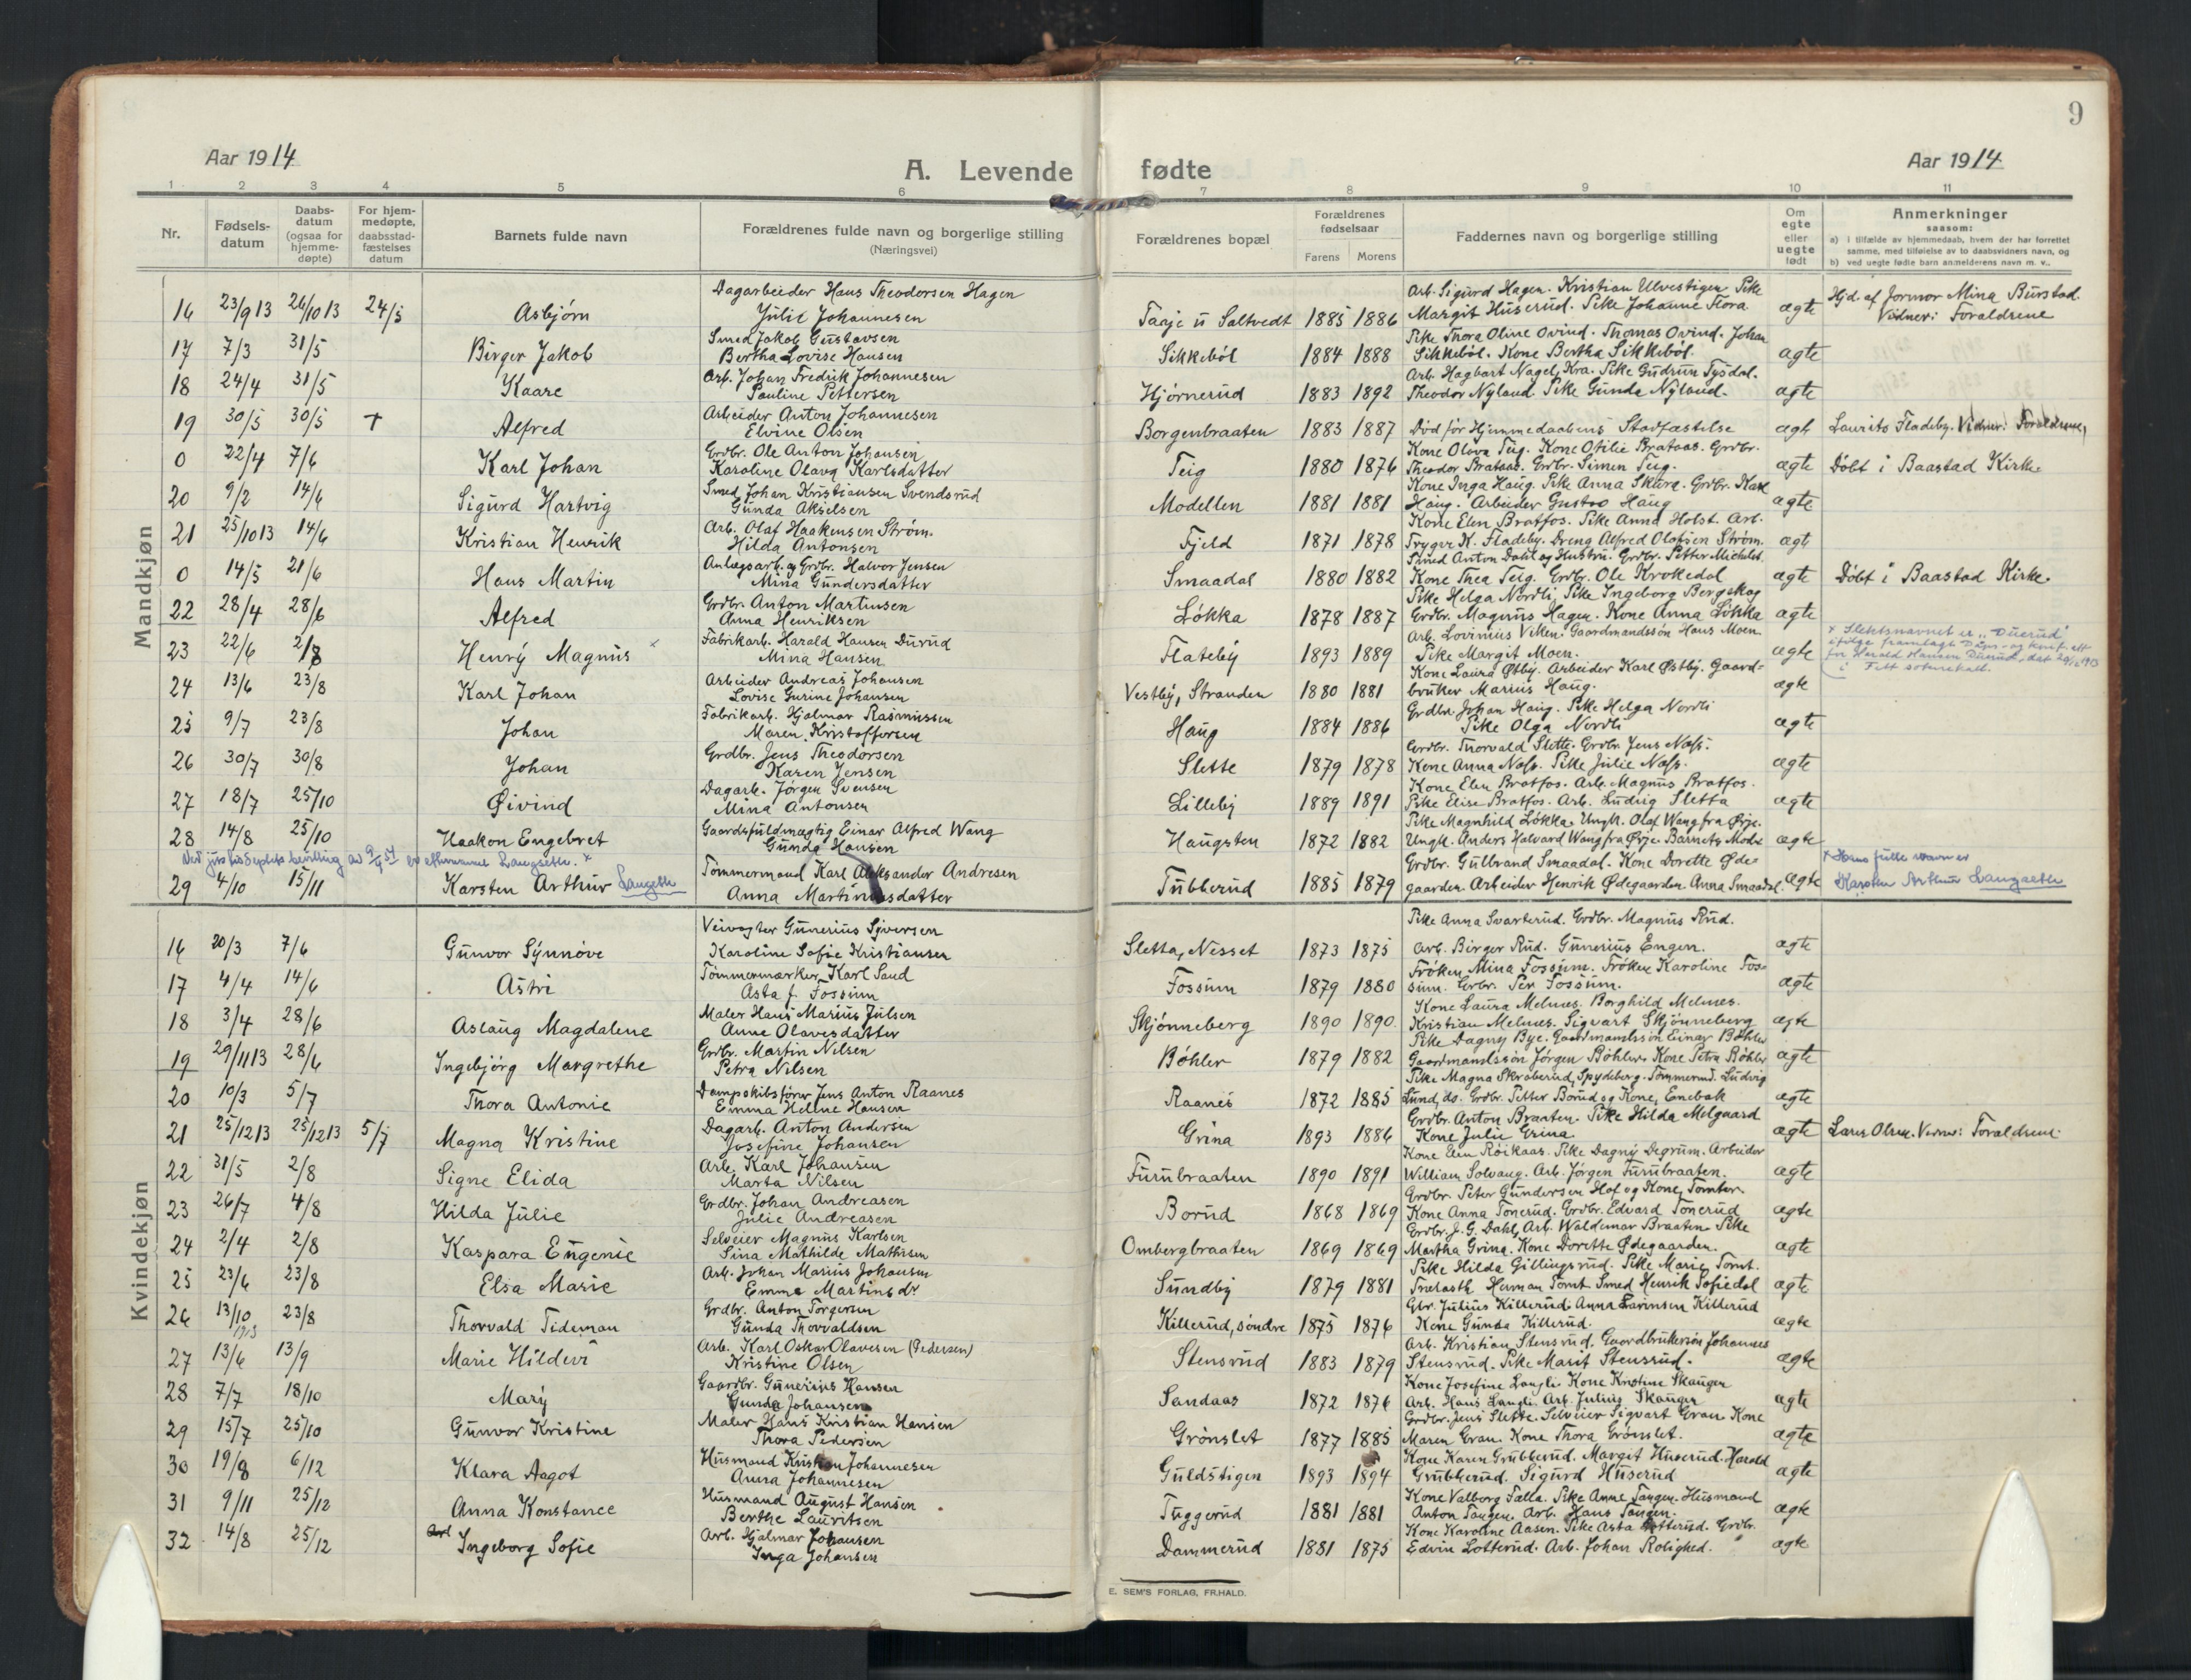 9
Aar 1914
A. Levende fødte
Aar 1914
1 2 3 4 5 6 7 8 9 10 11
Nr.
Fødsels-
datum
Daabs-
datum
(ogsaa for
hjemme-
døpte)
For hjem-
medøpte,
daabsstad-
fæstelses
datum
Barnets fulde navn
Forældrenes fulde navn og borgerlige stilling
(Næringsvei)
Forældrenes bopæl
Forældrenes
fødselsaar
Farens Morens
Faddernes navn og borgerlige stilling
Om
egte
eller
uegte
født
Anmerkninger
saasom:
a) i tilfælde av hjemmedaab, hvem der har forrettet
samme, med tilføielse av to daabsvidners navn, og
b) ved uegte fødte barn anmelderens navn m. v..
Mandkjøn
16 23/9 13 26/10 13 24/5 Asbjørn
Dagarbeider Hans Theodorsen Hagen
Julie Johannesen
Taaje u Saltvedt 1885 1886
Arb. Sigurd Hagen. Kristian Ulvestigen Pike
Margit Huserud. Pike Johanne Flora
ægte
Hjd. af Jormor Mina Burstad.
Vidner: Foraldrene
17 7/3 31/5 Birger Jakob
Smed Jakob Gustavsen
Bertha Lovise Hansen
Sikkebøl 1884 1888
Pike Thora Oline Ovind. Thomas Ovind. Johan
Sikkebøl. Kone Bertha Sikkebøl.
ægte
18 24/4 31/5 Kaare
Arb. Johan Fredrik Johannesen
Pauline Pettersen
Hjørnerud 1883 1892
Arb. Hagbart Nagel, Kra. Pike Gudrun Tysdal.
Theodor Nyland. Pike Gunda Nyland.
ægte
19 30/5 30/5 + Alfred
Arbeider Anton Johannesen
Elvine Olsen
Borgenbraaten 1883 1887
Død før Hjemmedaabens Stadfæstelse
ægte
Laurits Fladeby. Vidner: Foraldrene,
0 22/4 7/6 Karl Johan
Grdbr. Ole Anton Johansen
Karoline Olava Karlsdatter
Teig 1880 1876
Kone Olava Teig. Kone Otilie Brataas. Grdbr.
Theodor Brataas. Grdbr. Simen Teig.
ægte
Døbt i Baastad Kirke
20 9/2 14/6 Sigurd Hartvig
Smed Johan Kristiansen Svendsrud
Gunda Akselsen
Modellen 1881 1881
Kone Inga Haug. Pike Anna Skura. Grdbr. Karl
Haug. Arbeider Gustav Haug
ægte
21 25/10 13 14/6 Kristian Henrik
Arb. Olaf Haakensen Strøm.
Hilda Antonsen
Fjeld 1871 1878
Kone Elen Bratfos. Pike Anna Holst. Arb.
Trygve K. Fladeby. Dreng Alfred Olafsen Strøm.
ægt
0 14/5 21/6 Hans Martin
Anlægsarb. og Grdbr. Halvor Jensen
Mina Gundersdatter
Smaadal 1880 1882
Smed Anton Dahl og Hustru. Grdbr. Petter Michels.
Kone Thea Teig. Grdbr. Ole Krokedal
ægte
Døbt i Baastad Kirke.
22 28/4 28/6 Alfred
Grdbr. Anton Martinsen
Anna Henriksen
Løkka 1878 1887
Pike Helga Nordli, Pike Ingeborg Bergskog
Grdbr. Magnus Hagen. Kone Anna Løkka
ægte
23 22/6 2/8 Henry Magnus x
Fabrikarb. Harald Hansen Durud
Mina Hansen
Flateby 1893 1889
Arb. Lovinius Viken. Gaardmandssøn Hans Moen
Pike Margit Moen.
ægte
x Slektsnavnet er "Duerud"
ifølge framlagt Daps- og konf. att
for Harald Hansen Duerud, dat
i Fett soknekall.
24 13/6 23/8 Karl Johan
Arbeider Andreas Johansen
Lovise Gurine Johansen
Vestby, Stranden 1880 1881
Kone Laura Østby. Arbeider Karl Østby. Gaard-
bruker Marius Haug.
ægte
25 9/7 23/8 Johan
Fabrikarb. Hjalmar Rasmussen
Maren Kristoffersen
Haug 1884 1886
Grdbr. Johan Haug. Pike Helga Nordli
Pike Olga Nordli
ægte
26 30/7 30/8 Johan
Grdbr. Jens Theodorsen
Karen Jensen
Slette 1879 1878
Grdbr. Thorvald Slette. Grdbr. Jens Næss.
Kone Anna Næss. Pike Julie Næss.
ægte
27 18/7 25/10 Øivind
Dagarb. Jørgen Svensen
Mina Antonsen
Lilleby 1889 1891
Kone Elen Bratfos. Arb. Magnus Bratfos.
Pike Elise Bratfos. Arb. Ludvig Sletta
ægte
28 14/8 25/10 Haakon Engebret
Gaardsfuldmægtig Einar Alfred Wang
Gunda Hansen
Haugsten 1872 1882
Pike Magnhild Løkka. Ungk. Olaf Wang fra Ørje.
Ungk. Anders Halvard Wang fra Ørje. Barnets Moder
ægte
Ved justisdeptets bevilling av 9/4 51 er efternavnet Langseth. x
29 4/10 15/11 Karsten Arthur Langseth
Tømmermand Karl Aleksander Andresen
Anna Martinusdatter
Tubberud 1885 1879
Grdbr. Gulbrand Smaadal. Kone Dorette Øde-
gaarden. Arbeider Henrik Ødegaarden. Anna Smaadal.
ægte
x Hans fulle navn er
Karsten Arthur Langseth
Kvindekjøn
16 20/3 7/6 Gunvor Synnøve
Veivogter Gunerius Syversen
Karoline Sofie Kristiansen
Sletta, Nesset 1873 1875
Pike Anna Svarterud. Grdbr. Magnus Rud.
Arb. Birger Rud. Gunerius Engen.
ægte
17 4/4 14/6 Astri
Tømmermærker Karl Sand
Asta f. Fossum
Fossum 1879 1880
Frøken Mina Fossum. Frøken Karoline Fos-
sum. Grdbr. Per Fossum.
ægte
18 3/4 28/6 Aslaug Magdalene
Maler Hans Marius Julsen
Anne Olavesdatter
Skjønneberg 1890 1890.
Kone Laura Melnes. Borghild Melnes.
Kristian Melnes. Sigvart Skjønneberg
ægte
19 29/11 13 28/6 Ingebjørg Margrethe
Grdbr. Martin Nilsen
Petra Nilsen
Bøhler 1879 1882
Pike Dagny Bye. Gaardmandssøn Einar Bøhler
Gaardmandssøn Jørgen Bøhler. Kone Petra Bøhler
ægte
20 10/3 5/7 Thora Antonie
Dampskibsfører Jens Anton Raanes
Emma Helene Hansen
Raanes 1872 1885
Pike Magna Skraberud, Spydeberg. Tømmermd. Ludvig
Lund, do. Grdbr. Petter Borud og Kone, Enebak
ægte
21 25/12 13 25/12 13 5/7 Magna Kristine
Dagarb. Anton Andersen
Josefine Johansen
Grina 1893 1886
Grdbr. Anton Braaten. Pike Hilda Melgaard
Kone Julie Grina.
ægte
Lars Olsen. Vidner: Foraldrene
22 31/5 2/8 Signe Elida
Arb. Karl Johansen
Marta Nilsen
Furubraaten 1890 1891
Kone Elen Røikaas. Pike Dagny Degrum. Arbeider
William Solvang. Arb. Jørgen Furubraaten.
ægte
23 26/7 4/8 Hilda Julie
Grdbr. Johan Andreasen
Julie Andreasen
Borud 1868 1869
Grdbr. Peter Gundersen Hof og Kone, Tomter.
Kone Anna Tonerud. Grdbr. Edvard Tonerud
ægte
24 2/4 2/8 Kaspara Eugenie
Selveier Magnus Karlsen
Sina Mathilde Mathisen
Ombergbraaten 1869 1869
Grdbr. J. G. Dahl, Arb. Waldemar Braaten. Pike
Martha Grina. Kone Dorette Ødegaarden.
ægte
25 23/6 23/8 Elsa Marie
Arb. Johan Marius Johansen
Emma Martinsdr
Sundby 1879 1881
Pike Hilda Gillingsrud. Pike Marie Tomt.
Trælasth. Herman Tomt. Smed Henrik Sofiedal
ægte
26 13/10 1913 23/8 Thorvald Tideman
Grdbr. Anton Torgersen
Gunda Thorvaldsen
Killerud, søndre 1875 1876
Gbr. Julius Killerud. Anna Larinsen Killerud
Kone Gunda Killerud.
ægte
27 13/6 13/9 Marie Hildevi
Arb. Karl Oskar Olavesen (Pedersen)
Kristine Olsen
Stensrud 1883 1879
Arb. Kristian Stensrud. Gaardbrukersøn Johannes
Stensrud. Pike Marit Stensrud.
ægte
28 7/7 18/10 Mary
Gaardbr. Gunerius Hansen
Gunda Johansen
Sandaas 1872 1876
Kone Josefine Langli. Kone Kristine Skauger
Arb. Hans Langli. Arb. Julius Skauger
ægte
29 15/7 25/10 Gunvor Kristine
Maler Hans Kristian Hansen
Thora Pedersen
Grønslet 1877 1885
Grdbr. Jens Slette. Selveier Sigvart Gran Kone
Maren Gran. Kone Thora Grønslet.
ægte
30 19/8 6/12 Klara Aagot
Husmand Kristian Johannesen
Anna Johannesen
Guldstigen 1893 1894
Kone Karen Grubberud. Margit Huserud. Harald
Grubberud. Sigurd Huserud
ægte
31 9/11 25/12 Anna Konstance
Husmand August Hansen
Berthe Lauritsen
Tuggerud 1881 1881
Kone Valborg Talla. Pike Anne Tangen. Husmand
Anton Tangen. Arb. Hans Tangen.
ægte
32 14/8 25/12 Ingeborg Sofie
Arb. Hjalmar Johansen
Inga Johansen
Dammerud 1881 1875
Kone Karoline Aasen. Pike Asta Lotterud. Grdbr.
Edvin Lotterud. Arb. Johan Rolighed.
ægte
E. SEM'S FORLAG, FR.HALD.